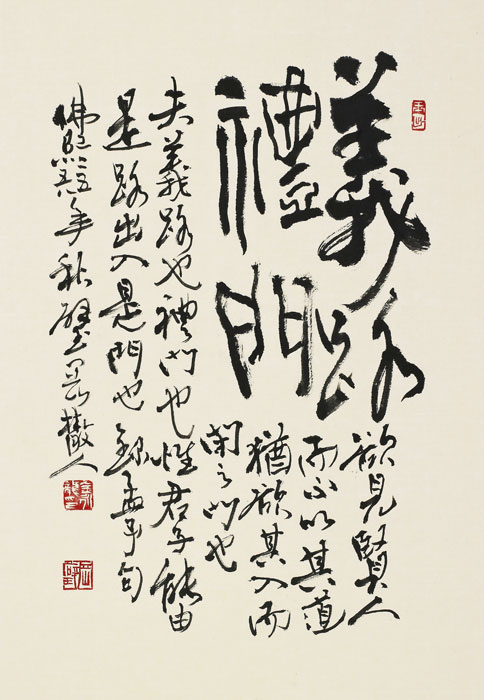 義路
禮門
欲見賢人
而不以其道
猶欲其入而
閉之門也
夫義路也禮門也惟君子能由
是路出入是門也錄孟子句
年秋 散人